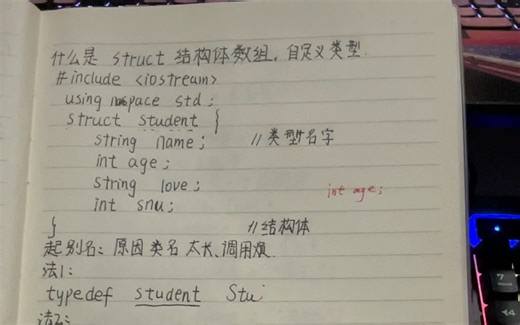 什么是 struct 结构体数组,自定义类型.
#include <iostream>
using nmspace std;
struct student {
string name; //类型名字
int age;
string love; int age;
int snu;
} //结构体
起别名: 原因 类名 太长、调用烦.
法1:
typedef student Stu
法2: